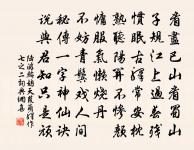 看盡巴山看蜀山
子規江上過春殘
慣眠古驛常安枕
熟聽陽關不慘顏
慵服氣懶燒丹
不妨青鬢戲人間
秘傳一字神仙訣
說與君知只是頑
陸游鷓鴣天葭萌驛作
七之二詞典網集